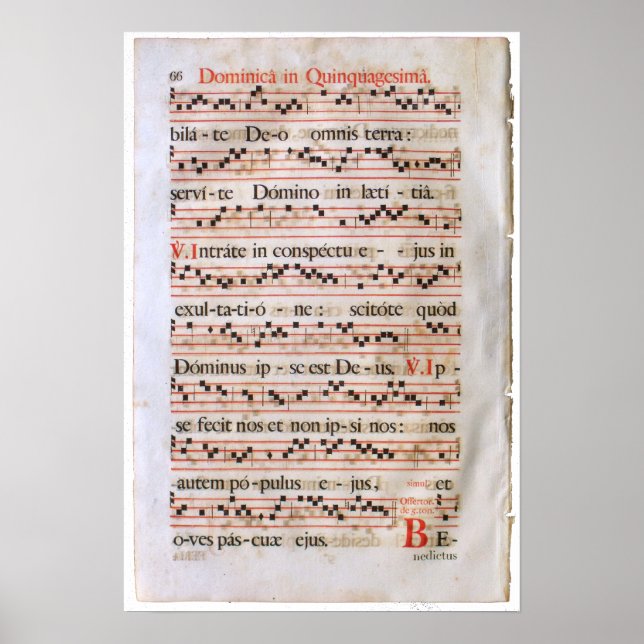 66 Dominicâ in Quinquagesimâ.
bilá-te De-o omnis terra:
serví-te Dómino in lætí-tiâ.
℣. Intráte in conspéctu e--jus in
exul-ta-ti-ó-ne: scitóte quòd
Dóminus ip-se est De-us. ℣. Ip-
se fecit nos et non ip-si nos: nos
autem pó-pulus e-jus, simul et
Offertor.
de 5. ton.
o-ves pás-cuæ ejus. BE-
nedictus